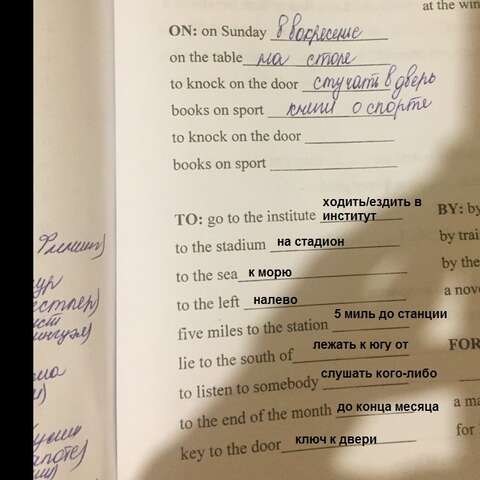 at the win
ON: on Sunday в воскресение
on the table на столе
to knock on the door стучать в дверь
books on sport книги о спорте
to knock on the door
books on sport
ходить/ездить в
TO: go to the institute институт
BY: by
to the stadium на стадион
by trai
to the sea к морю
by the
to the left налево
a nove
five miles to the station 5 миль до станции
lie to the south of лежать к югу от
FOR
to listen to somebody слушать кого-либо
to the end of the month до конца месяца
a ma
key to the door ключ к двери
for